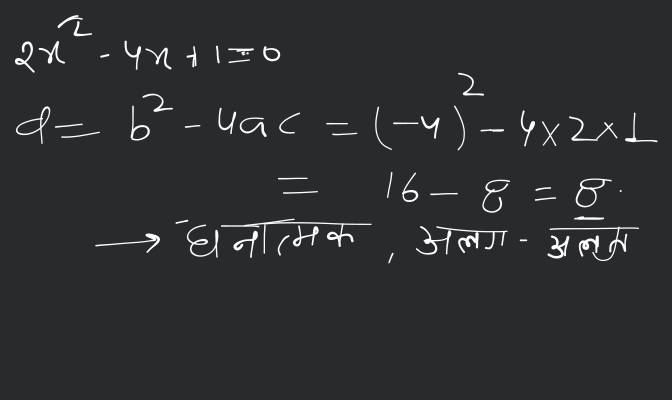 2x² - 4x + 1 = 0
d = b² - 4ac = (-4)² - 4×2×1
= 16 - 8 = 8.
→ धनात्मक, अलग - अलग